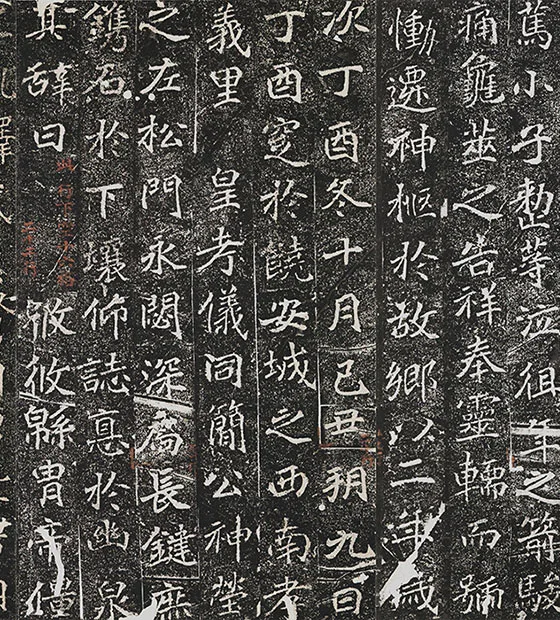 篤小子整等泣徂年之箭駿
痛龜筮之告祥奉靈轜而號
慟遷神柩於故鄉以二年歲
次丁酉冬十月己丑朔九日
丁酉窆於饒安城之西南孝
義里皇考儀同簡公神塋
之左松門永閟深扃長鍵庶
鐫石於下壤仰誌悳於幽泉
其辭曰攸攸緜胄帝僵